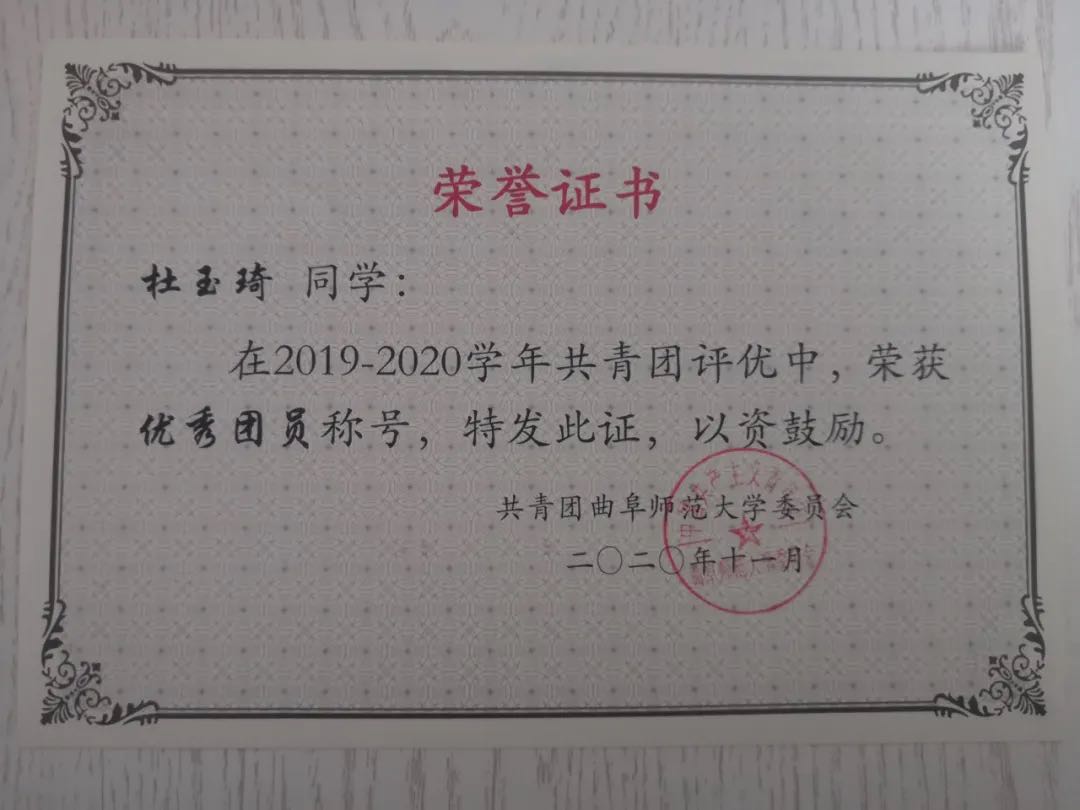 荣誉证书
杜玉琦 同学：
在2019-2020学年共青团评优中，荣获
优秀团员称号，特发此证，以资鼓励。
共青团曲阜师范大学委员会
二〇二〇年十一月